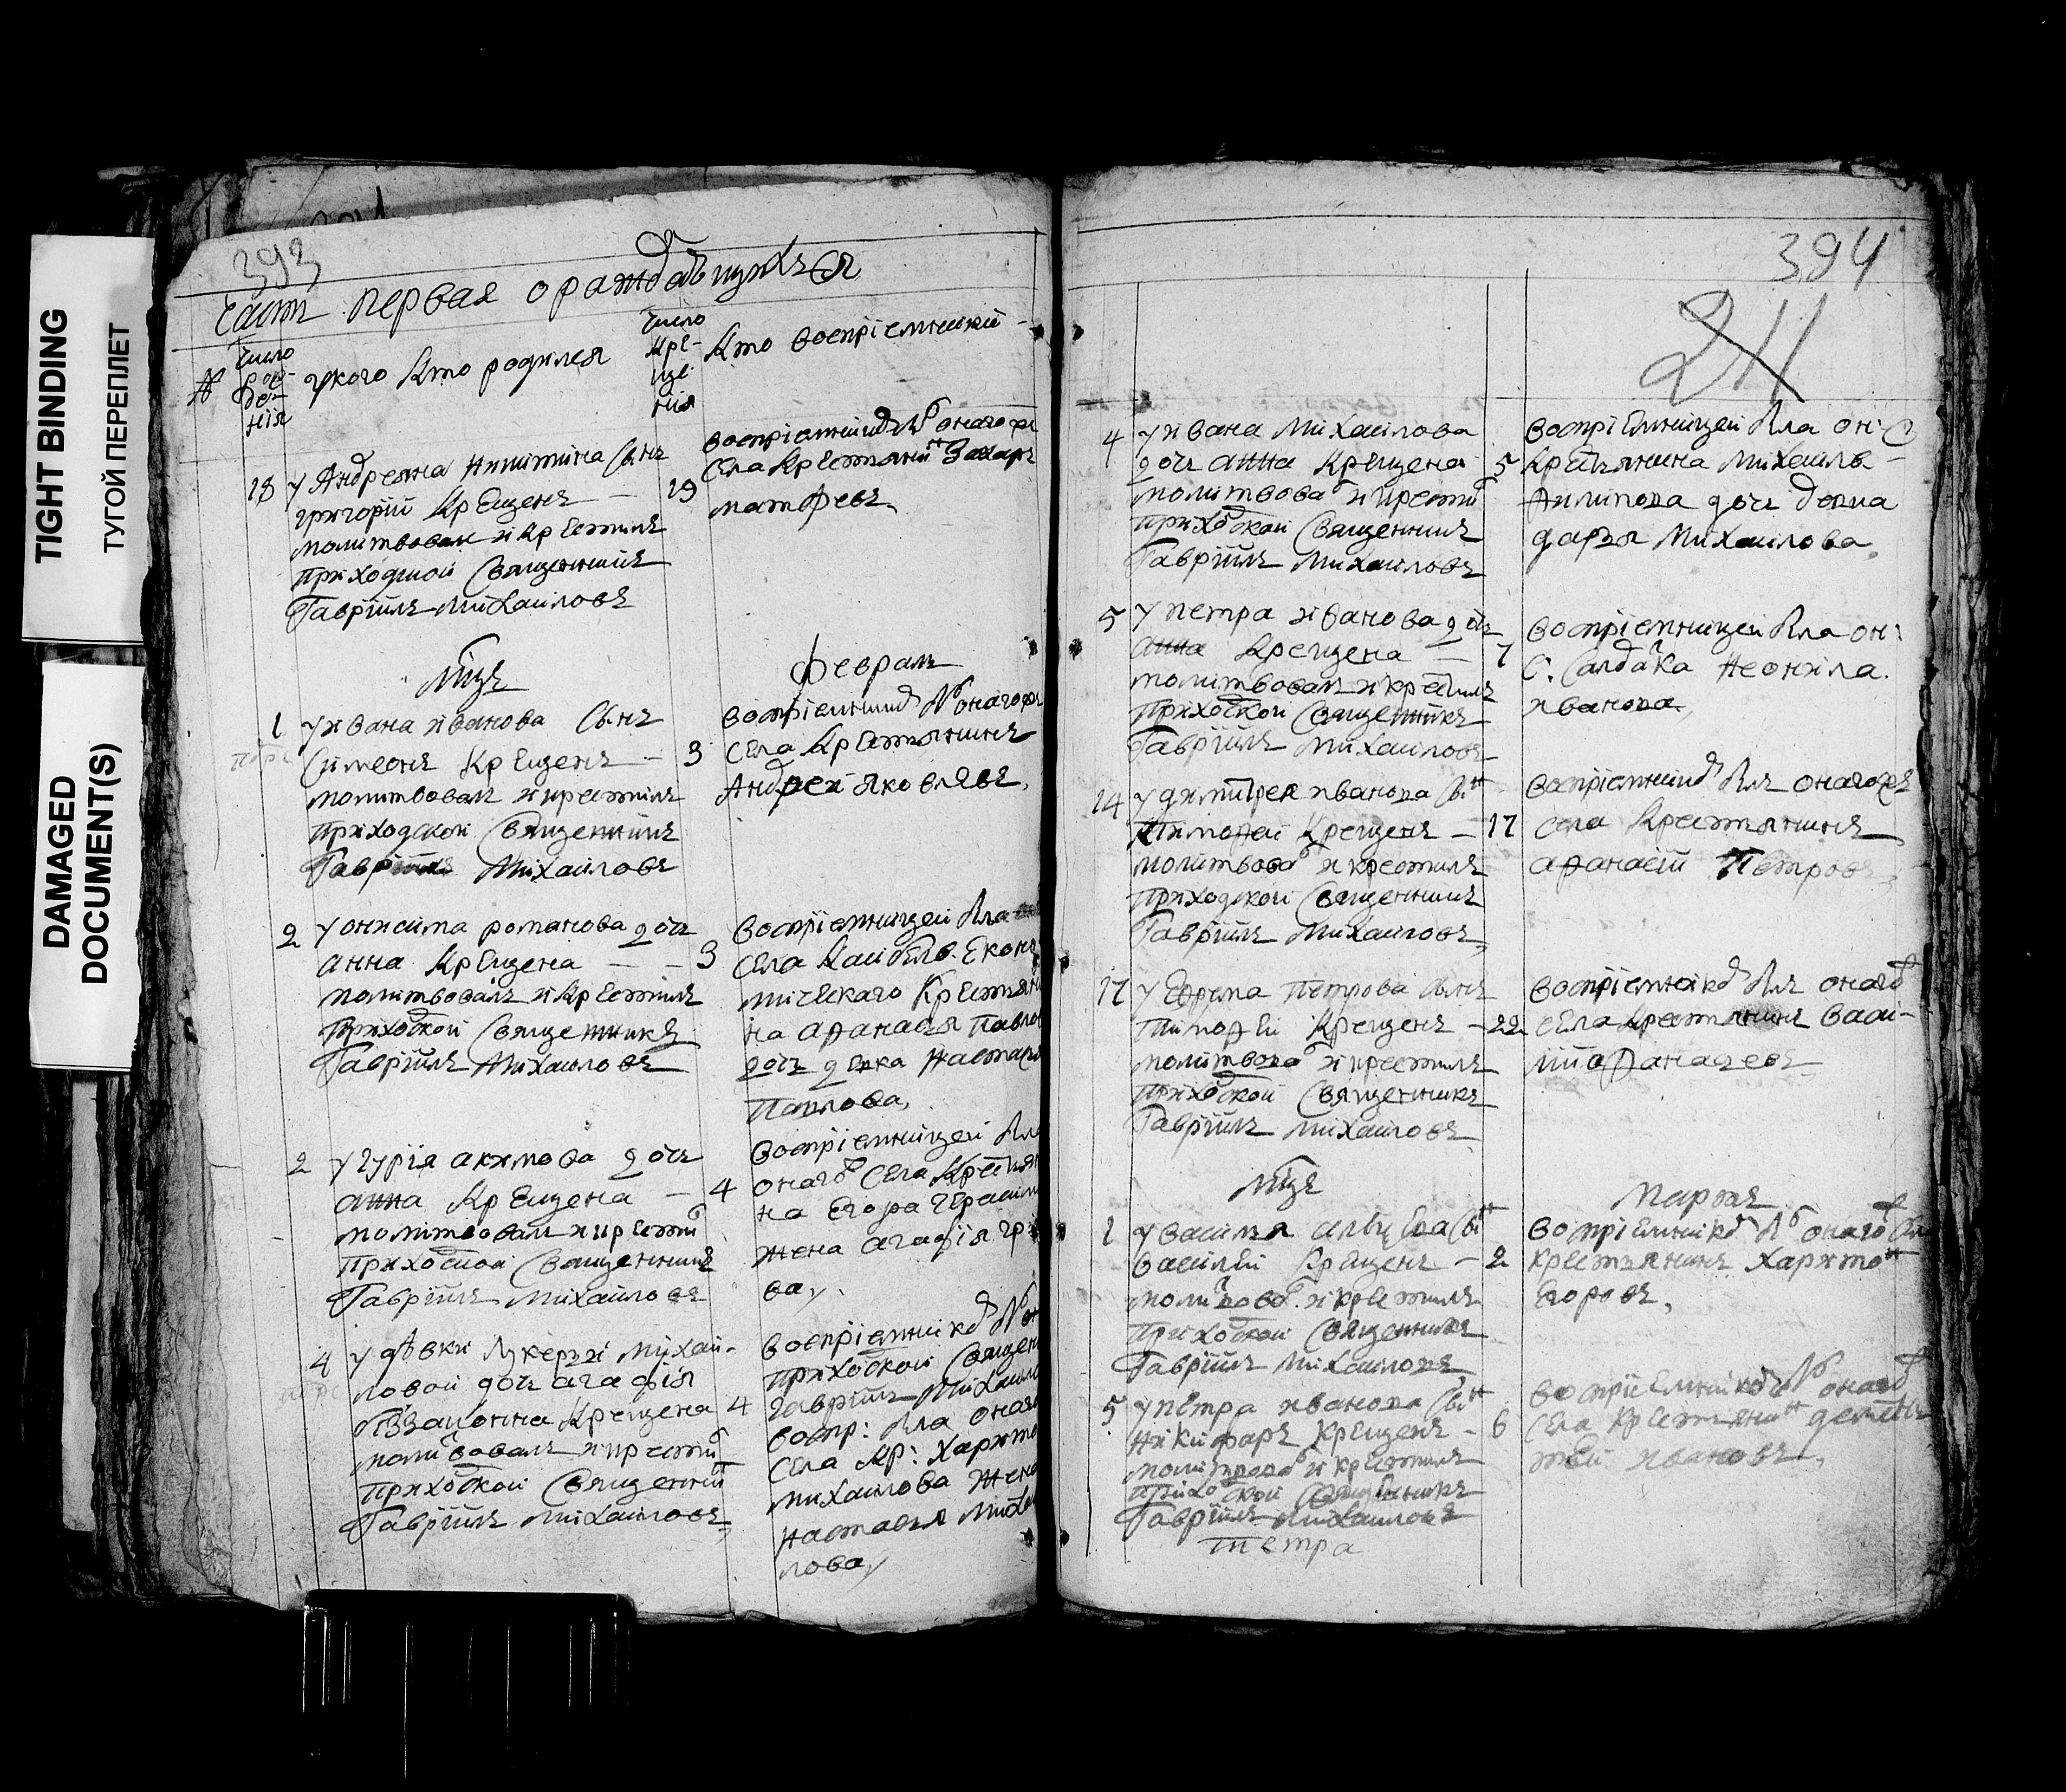 TIGHT BINDING
ТУГОЙ ПЕРЕПЛЕТ
DAMAGED
DOCUMENT(S)
393
Часть первая о раждавшихся
№
Число
рож-
де-
нія
у кого кто родился
Число
кре-
ще-
нія
Кто воспріемники
18 у Андреяна Никитина сынъ
григорій Крещенъ — 19
молитвовалъ и Крестилъ
приходской Священникъ
Гавріилъ Михаиловъ
воспріемникъ былъ онагоже
села Крестьянинъ Захаръ
матфеевъ
Мцъ
февраль
1 у ивана иванова Сынъ
Симеонъ Крещенъ — 3
молитвовалъ и крестилъ
приходской Священникъ
Гавріилъ Михаиловъ
воспріемникъ былъ онагоже
села Крестьянинъ
Андреи Яковлявъ
2 у онисима романова дочь
анна Крещена — — 3
молитвовалъ и Крестилъ
Приходской Священникъ
Гавріилъ Михаиловъ
воспріемницей была
села Екон
мическаго Крестьяни
на афанасья Павло
дочь девка Настась
Павлова,
2 у гурія акимова дочь
анна Крещена — 4
молитвовалъ и крести
приходской Священникъ
Гавріилъ Михаиловъ
воспріемницей была
онаго села Крестьяни
на Егора Герасим
жена агафія гри
ва,
4 у дѣвки Лукерьи михаи-
ловой дочь агафія
незаконна Крещена 4
молитвовалъ и крести
приходской Священни
Гавріилъ Михаиловъ
воспріемникъ былъ
приходской Священ
гавріилъ Михаило
воспр: была онаго
села Кр: Харито
михаилова жена
настасья михаи
лова,
394
211
4 у ивана Михаилова
дочь анна Крещена 5
молитвовалъ и крести
приходской Священникъ
Гавріилъ Михаиловъ
воспріемницей была он:
крестьянина Михаила
Филипова дочь девка
дарья Михаилова
5 у петра иванова дочь
анна Крещена — 7
молитвовалъ и крестилъ
приходской Священникъ
Гавріилъ Михаиловъ
воспріемницей была он:
с: Салдатка Неонила
иванова,
14 у димитрея иванова сын
Тимофеи Крещенъ — 17
молитвова и крестилъ
приходской Священникъ
Гавріилъ Михаиловъ
воспріемникъ былъ онагоже
села Крестьянинъ
афанасіи Петровъ
17 у Ефрема Петрова сынъ
тимофеи Крещенъ — 22
молитвова и крестилъ
приходской Священникъ
Гавріилъ Михаиловъ
воспріемникъ былъ онаго
села крестьянинъ васи-
лии афанасевъ
Мцъ
Мартъ
1 у василья сын
василеи Крещенъ — 2
молитвовал и крестилъ
приходской Священникъ
Гавріилъ Михаиловъ
воспріемникъ бы онаго
крестьянинъ харитон
Егоровъ,
5 у петра иванова сын
никифаръ Крещенъ — 6
молитвова и крестилъ
приходской Священникъ
Гавріилъ Михаиловъ
воспріемникъ бы онаго
села Крестьянин демен
теи ивановъ,
тетра